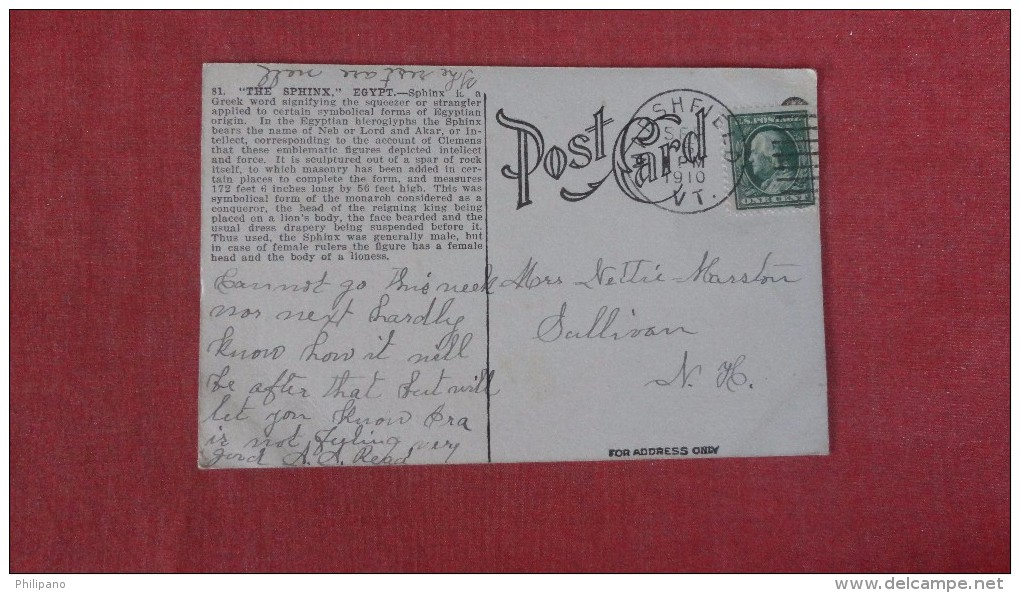 The rest are well
81. "THE SPHINX," EGYPT.—Sphinx is a
Greek word signifying the squeezer or strangler
applied to certain symbolical forms of Egyptian
origin. In the Egyptian hieroglyphs the Sphinx
bears the name of Neb or Lord and Akar, or In-
tellect, corresponding to the account of Clemens
that these emblematic figures depicted intellect
and force. It is sculptured out of a spar of rock
itself, to which masonry has been added in cer-
tain places to complete the form, and measures
172 feet 6 inches long by 56 feet high. This was
symbolical form of the monarch considered as a
conqueror, the head of the reigning king being
placed on a lion's body, the face bearded and the
usual dress drapery being suspended before it.
Thus used, the Sphinx was generally male, but
in case of female rulers the figure has a female
head and the body of a lioness.
Cannot go this week
nor next hardly
know how it will
be after that but will
let you know Ira
is not feeling very
good A. A. Read
Post Card
SE
PM
1910
VT.
U.S. POSTAGE
ONE CENT
Mrs Nettie Marston
Sullivan
N. H.
FOR ADDRESS ONLY
Philipano
www.delcampe.net